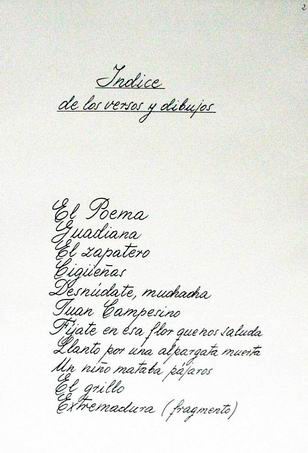 2
Indice
de los versos y dibujos
El Poema
Guadiana
El zapatero
Cigüeñas
Desnúdate, muchacha
Juan Campesino
Fíjate en esa flor que nos saluda
Llanto por una alpargata muerta
Un niño mataba pájaros
El grillo
Extremadura (fragmento)